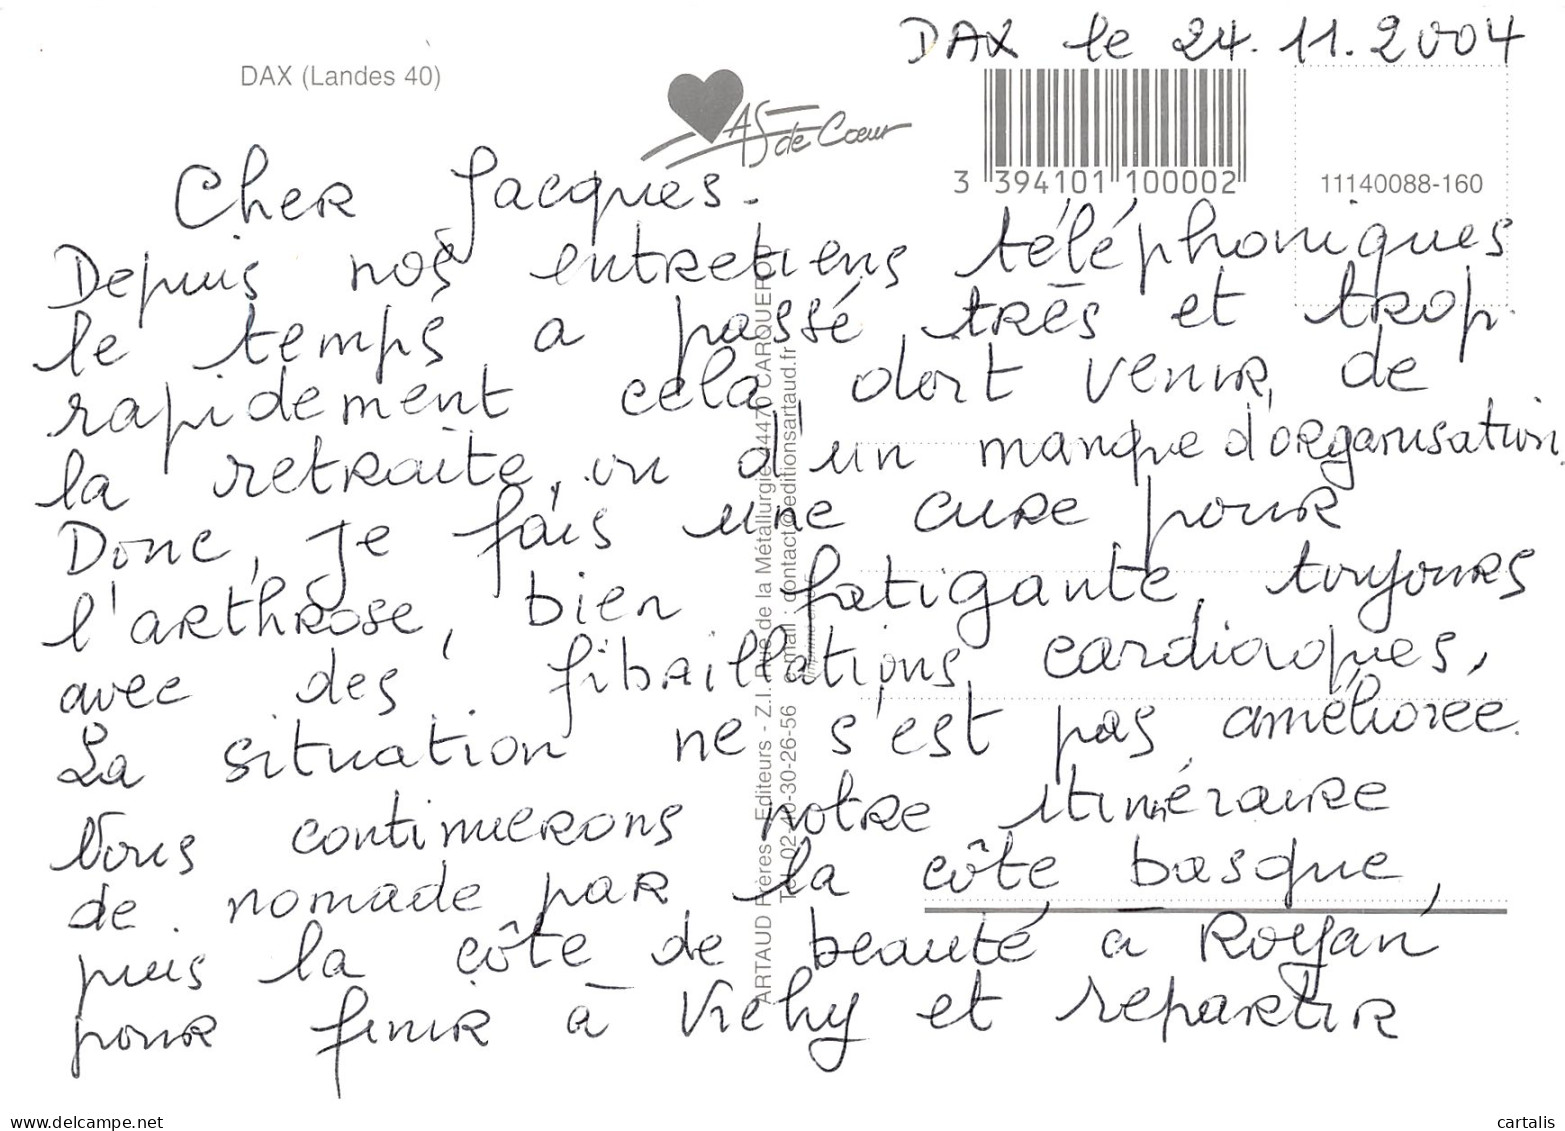 DAX le 24.11.2004
DAX (Landes 40)
As de Cœur
3 394101 100002
11140088-160
Cher Jacques.
Depuis nos entretiens téléphoniques
le temps a passé, très et trop
rapidement cela, doit venir, de
la retraite, ou d'un manque d'organisation.
Donc, je fais une cure pour
l'arthrose, bien fatigante, toujours
avec des fibrillations cardiaques,
La situation ne s'est pas améliorée.
Nous continuerons notre itinéraire
de nomade par la côte basque,
puis la côte de beauté à Royan
pour finir à Vichy et repartir
ARTAUD Frères Editeurs - Z.I. Rue de la Métallurgie 44470 CARQUEFOU
Tél. 02-40-30-26-56 email : contact@editionsartaud.fr
www.delcampe.net
cartalis